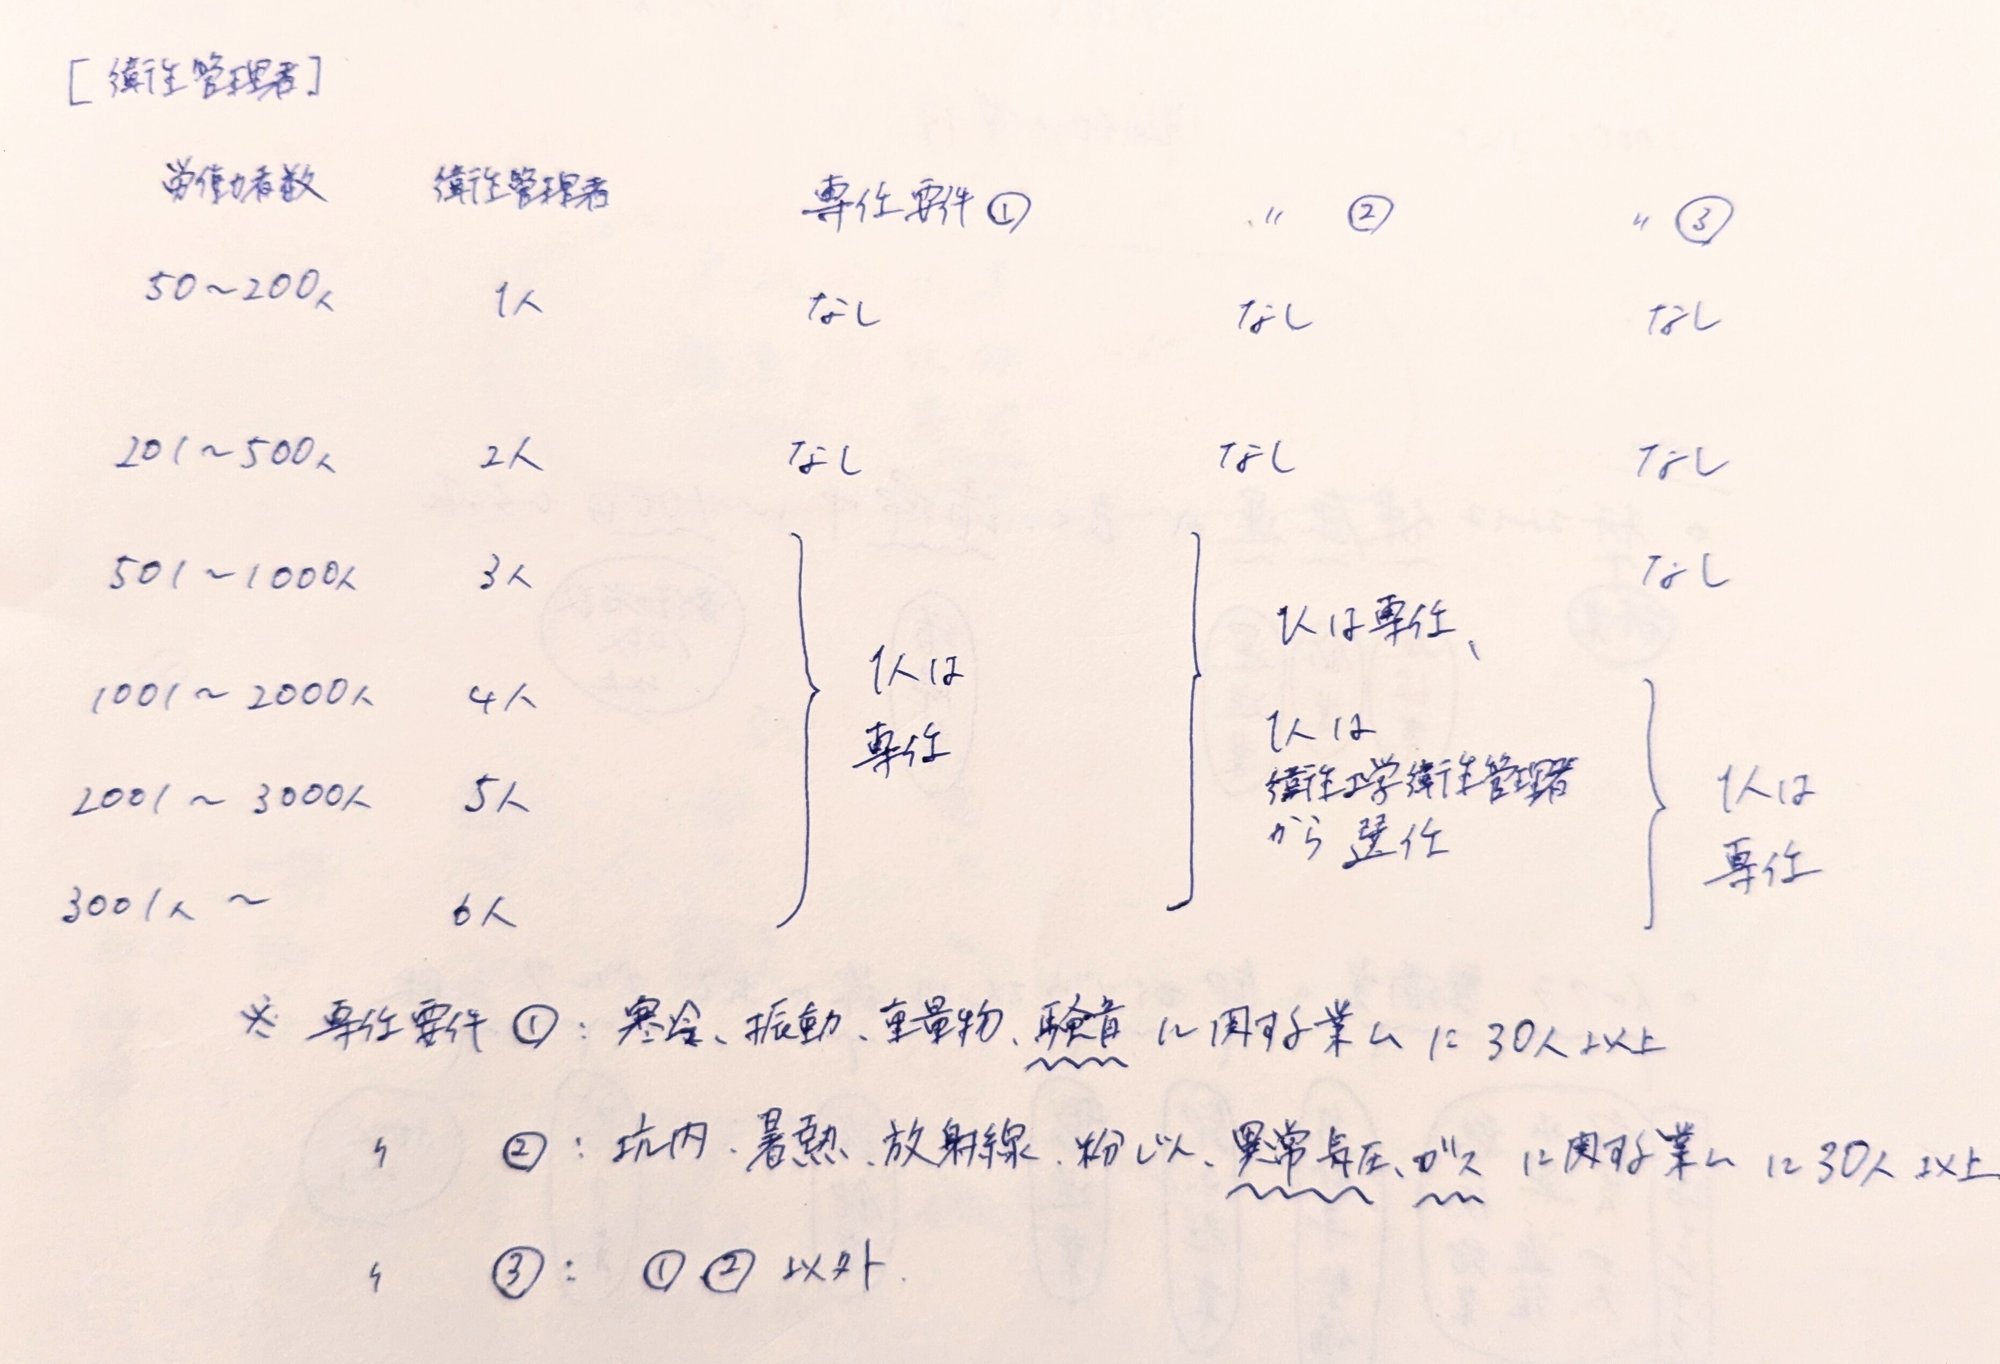 [衛生管理者]
労働者数 衛生管理者 専任要件① 〃 ② 〃 ③
50〜200人 1人 なし なし なし
201〜500人 2人 なし なし なし
501〜1000人 3人 なし
1人は専任、
1001〜2000人 4人 1人は 1人は
専任 衛生工学衛生管理者
2001〜3000人 5人 から選任 1人は
3001人〜 6人 専任
※ 専任要件①：寒冷、振動、重量物、騒音に関する業ムに30人以上
〃 ②：坑内、暑熱、放射線、粉じん、異常気圧、ガスに関する業ムに30人以上
〃 ③：①②以外.